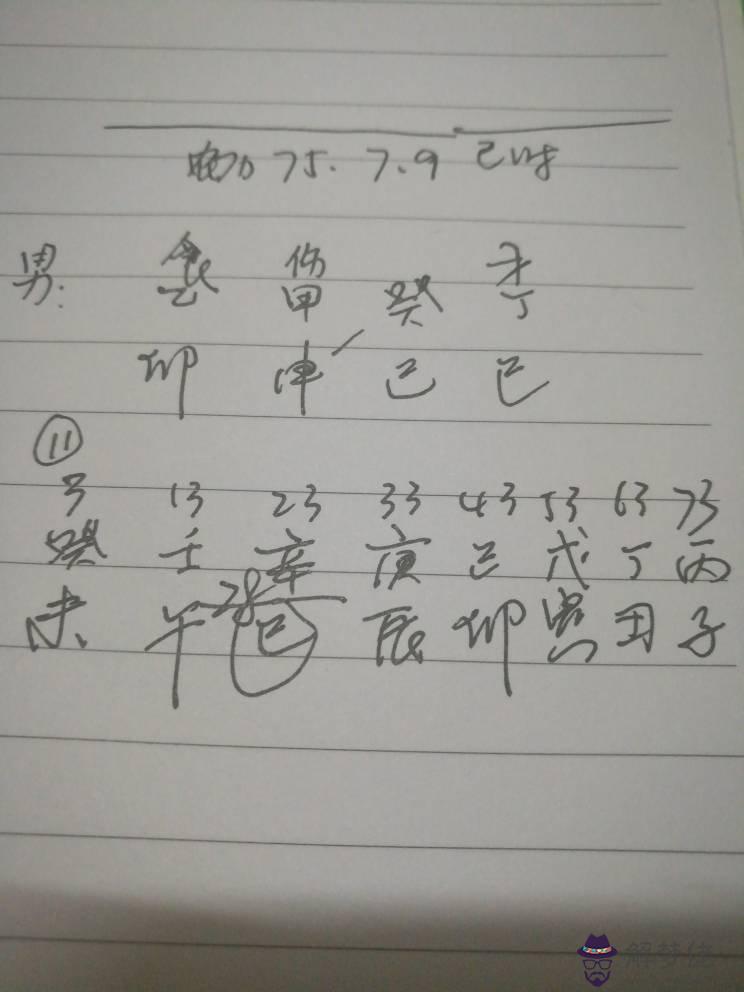 75.7.9 巳时
食 伤 才
男: 乙 甲 癸 丁
卯 申 巳 巳
11
3 13 23 33 43 53 63 73
癸 壬 辛 庚 己 戊 丁 丙
28
未 午 巳 辰 卯 寅 丑 子
解梦佬